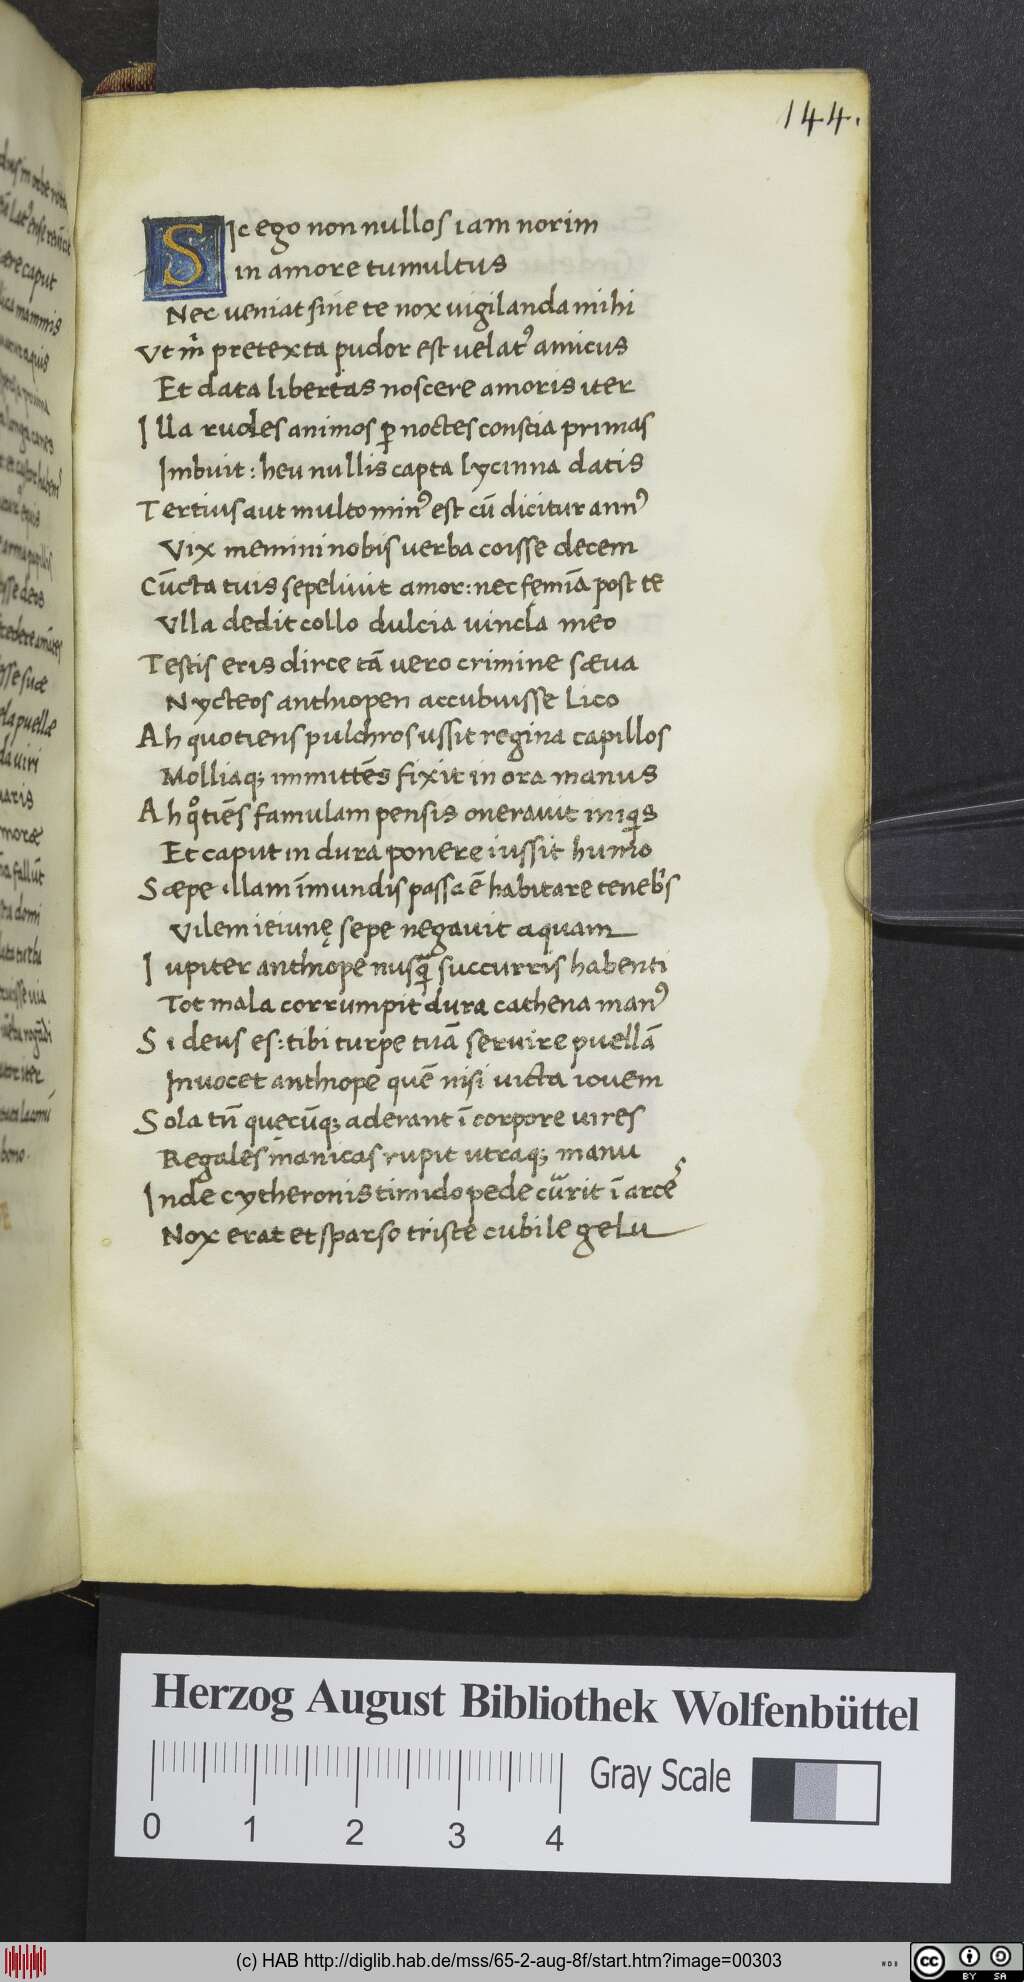 144.
Sic ego non nullos iam norim
in amore tumultus
Nec ueniat sine te nox uigilanda mihi
Vt m̃ pretexta pudor est uelatꝰ amicus
Et data libertas noscere amoris iter
Illa rudes animos ꝑ noctes conscia primas
Imbuit: heu nullis capta lycinna datis
Tertius aut multo minꝰ est cū dicitur annꝰ
Vix memini nobis uerba coisse decem
Cūcta tuis sepeliuit amor: nec femīa post te
Vlla dedit collo dulcia uincla meo
Testis eris dirce tā uero crimine sæua
Nycteos anthiopen accubuisse Lico
Ah quotiens pulchros ussit regina capillos
Molliaqꝫ immittēs fixit in ora manus
Ah qͦtiēs famulam pensis onerauit iniqͥs
Et caput in dura ponere iussit humo
Sæpe illam īmundis passa ē habitare tenebͥs
Vilem ieiunę sepe negauit aquam
Iupiter anthiope nusqͣ succurris habenti
Tot mala corrumpit dura cathena manꝰ
Si deus es: tibi turpe tuā seruire puellā
Inuocet anthiope quē nisi uicta iouem
Sola tñ quecūqꝫ aderant ī corpore uires
Regales manicas rupit utraqꝫ manu
Inde cytheronis timido pede cūrit ī arces
Nox erat et sparso triste cubile gelu
Herzog August Bibliothek Wolfenbüttel
Gray Scale
0 1 2 3 4
(c) HAB http://diglib.hab.de/mss/65-2-aug-8f/start.htm?image=00303
cc BY SA